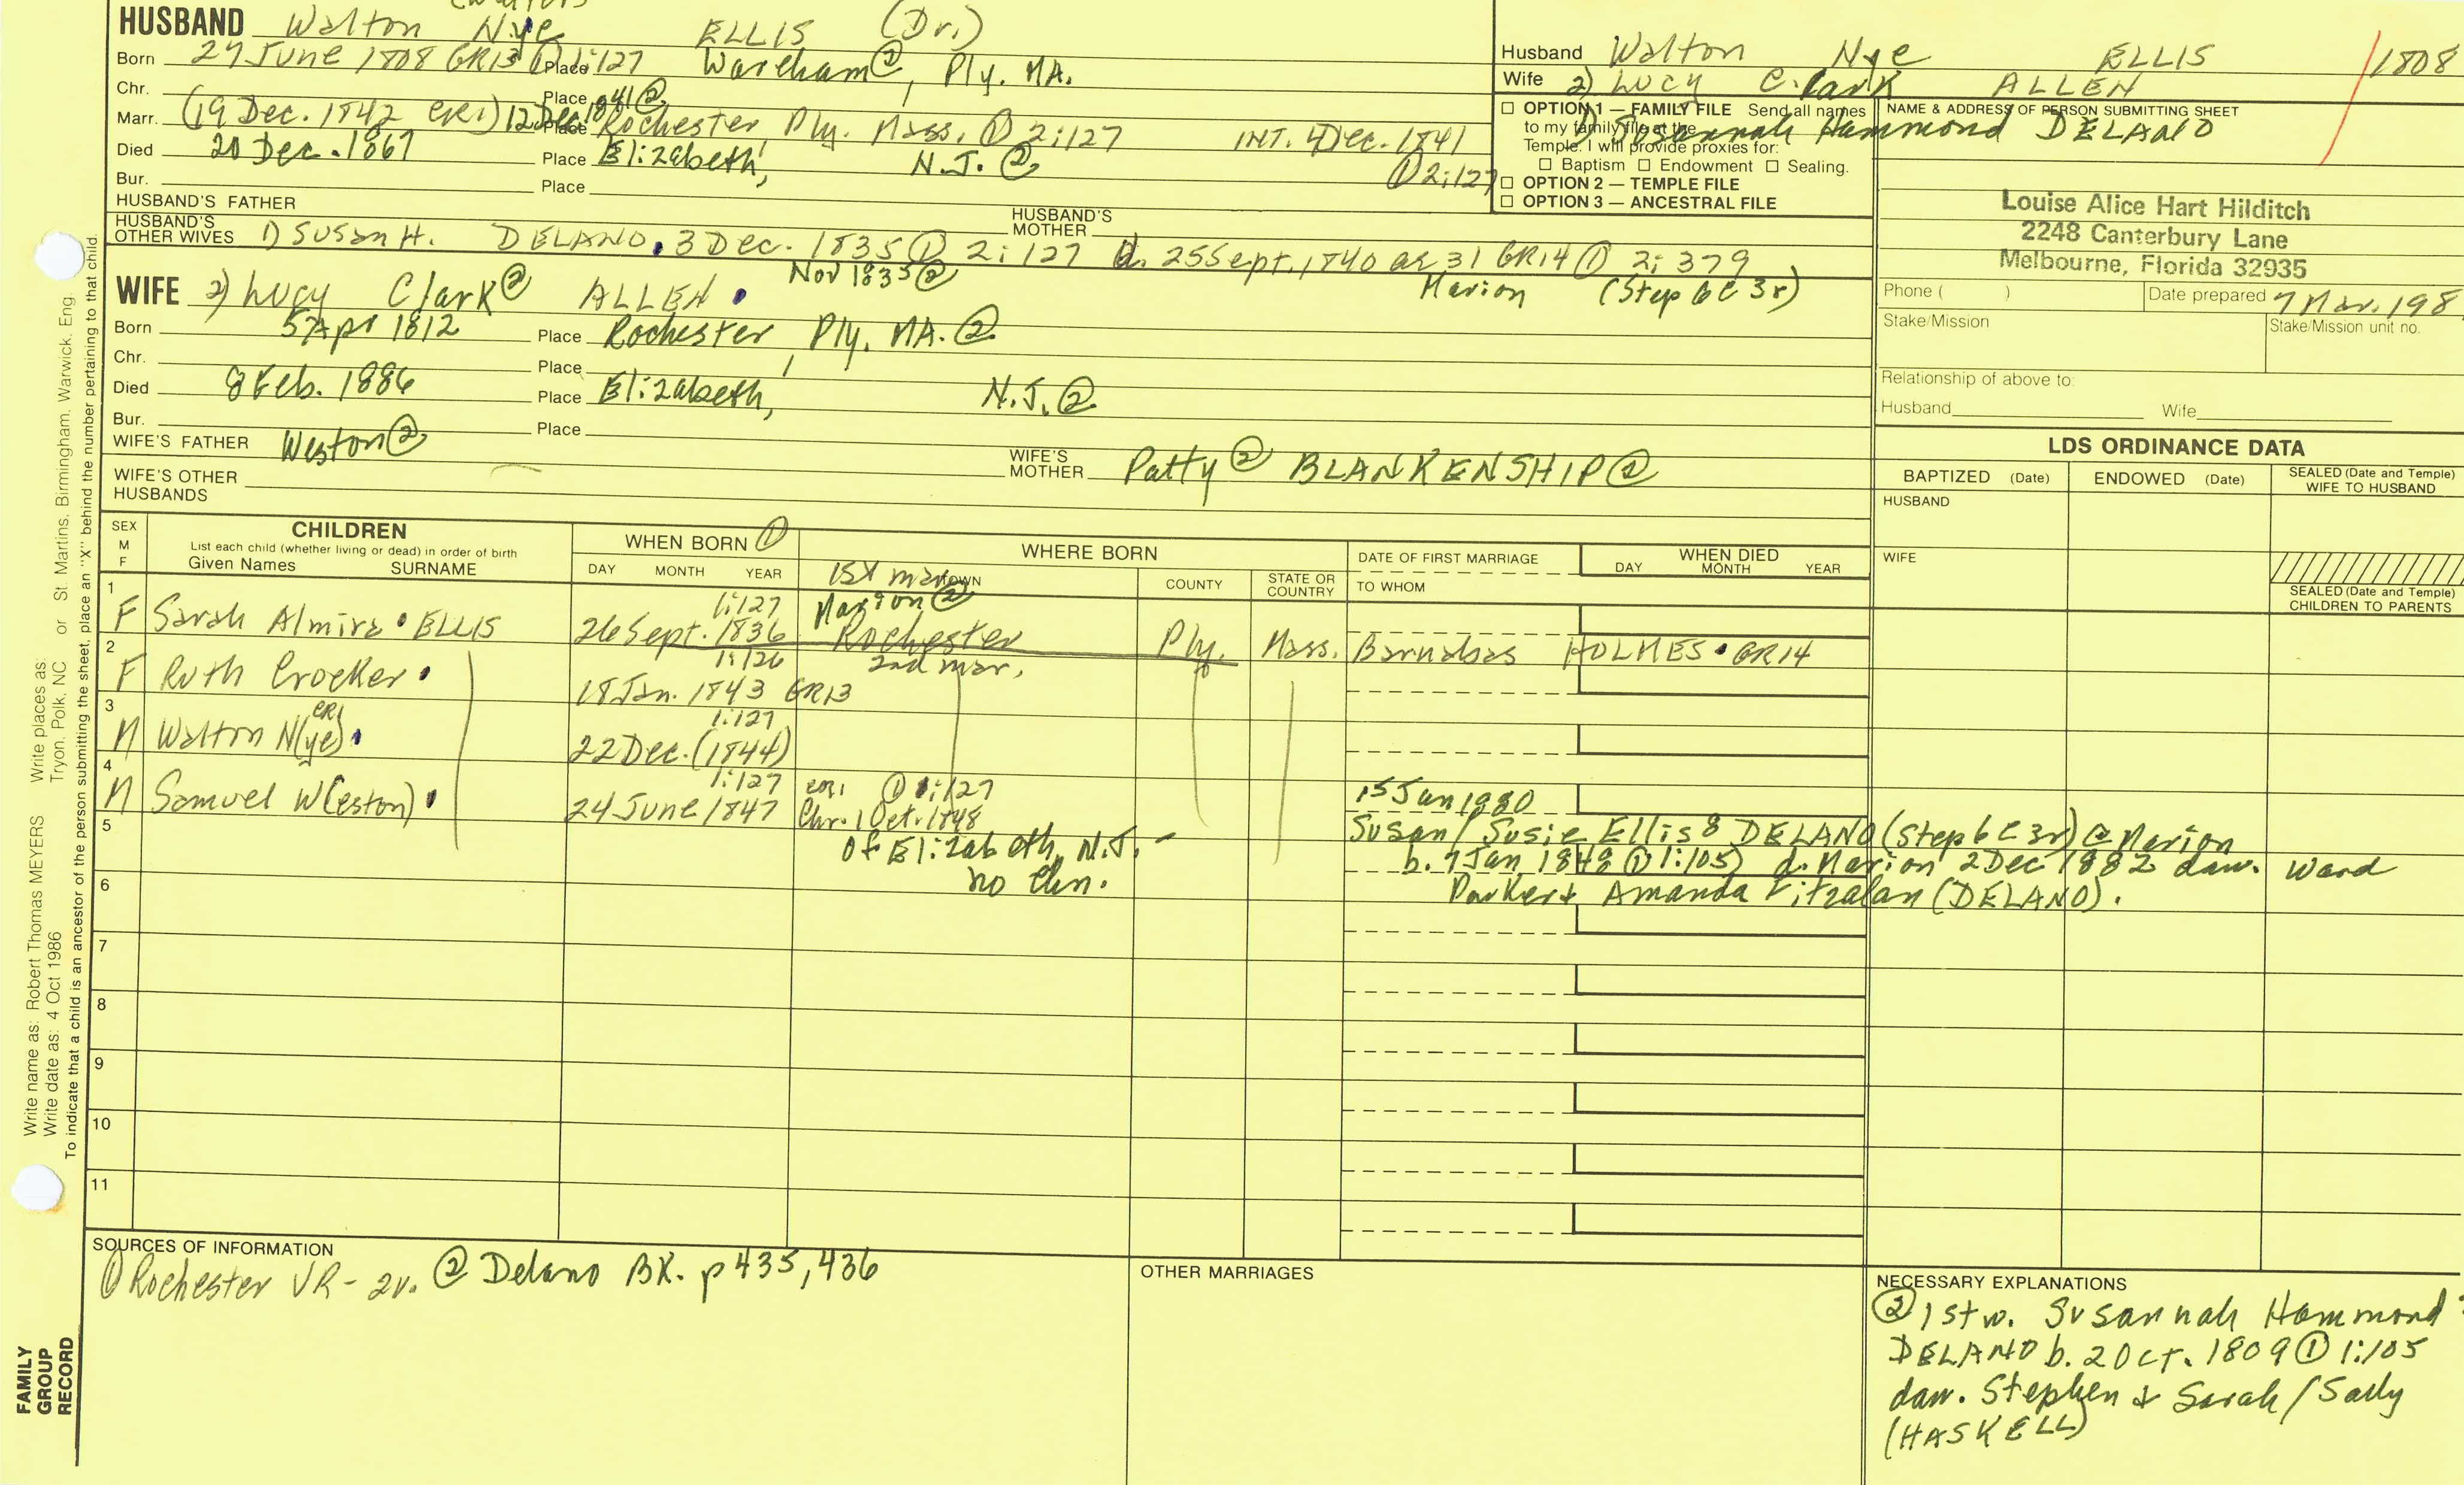 HUSBAND Walton Nye ELLIS (Dr.)
Born 27 June 1808 GR13 ① 1:127 Place Wareham②, Ply. MA.
Chr. Place
Marr. (19 Dec. 1842 CR1) 12 Dec. 1841② Place Rochester, Ply. Mass. ① 2:127 INT. 4 Dec. 1841 ① 2:127
Died 20 Dec. 1867 Place Elizabeth, N.J.②
Bur. Place
HUSBAND'S FATHER HUSBAND'S MOTHER
HUSBAND'S OTHER WIVES 1) Susan H. DELANO. 3 Dec. 1835 ① 2:127 d. 25 Sept. 1840 ae 31 GR14 ① 2:379
Nov 1835② Marion (Step 6C 3r)
WIFE 2) Lucy Clark② ALLEN.
Born 5 Apr 1812 Place Rochester, Ply. MA.②
Chr. Place
Died 8 Feb. 1886 Place Elizabeth, N.J.②
Bur. Place
WIFE'S FATHER Weston② WIFE'S MOTHER Patty② BLANKENSHIP②
WIFE'S OTHER HUSBANDS
Husband Walton Nye ELLIS /1808
Wife 2) Lucy C.lark ALLEN
1) Susannah Hammond DELANO
☐ OPTION 1 — FAMILY FILE Send all names
to my family file at the
Temple. I will provide proxies for:
☐ Baptism ☐ Endowment ☐ Sealing.
☐ OPTION 2 — TEMPLE FILE
☐ OPTION 3 — ANCESTRAL FILE
NAME & ADDRESS OF PERSON SUBMITTING SHEET
Louise Alice Hart Hilditch
2248 Canterbury Lane
Melbourne, Florida 32935
Phone ( ) Date prepared 7 Mar. 198
Stake/Mission Stake/Mission unit no.
Relationship of above to:
Husband Wife
LDS ORDINANCE DATA
BAPTIZED (Date) ENDOWED (Date) SEALED (Date and Temple) WIFE TO HUSBAND
HUSBAND
WIFE
SEALED (Date and Temple) CHILDREN TO PARENTS
SEX M F
CHILDREN
List each child (whether living or dead) in order of birth
Given Names SURNAME
WHEN BORN ①
DAY MONTH YEAR
WHERE BORN
TOWN COUNTY STATE OR COUNTRY
DATE OF FIRST MARRIAGE
TO WHOM
WHEN DIED
DAY MONTH YEAR
1st mar.
1 F Sarah Almira • ELLIS 1:127 26 Sept. 1836 Marion② Rochester Ply. Mass. Barnabas HOLMES • GR14
2nd mar.
2 F Ruth Crocker • 1:126 18 Jan. 1843 GR13
3 M Walton N(ye) CR1 • 1:127 22 Dec. (1844)
4 M Samuel W(eston) • 1:127 24 June 1847 CR1 ① 1:127 Chr. 1 Oct. 1848 15 Jan 1880
5 of Elizabeth, N.J. Susan/Susie Ellis 8 DELANO (Step 6C 3r) @ Marion
no chn. b. 7 Jan. 1848 ① 1:105) d. Marion 2 Dec 1882 dau. Ward
6 Parker + Amanda Fitzalan (DELANO).
7
8
9
10
11
SOURCES OF INFORMATION
① Rochester VR - 2v. ② Delano BK. p 435, 436
OTHER MARRIAGES
NECESSARY EXPLANATIONS
② 1st w. Susannah Hammond
DELANO b. 2 Oct. 1809 ① 1:105
dau. Stephen + Sarah/Sally
(HASKELL)
Write name as: Robert Thomas MEYERS Write places as: Tryon, Polk, NC or St. Martins, Birmingham, Warwick, Eng.
Write date as: 4 Oct 1986
To indicate that a child is an ancestor of the person submitting the sheet, place an "X" behind the number pertaining to that child.
FAMILY
GROUP
RECORD